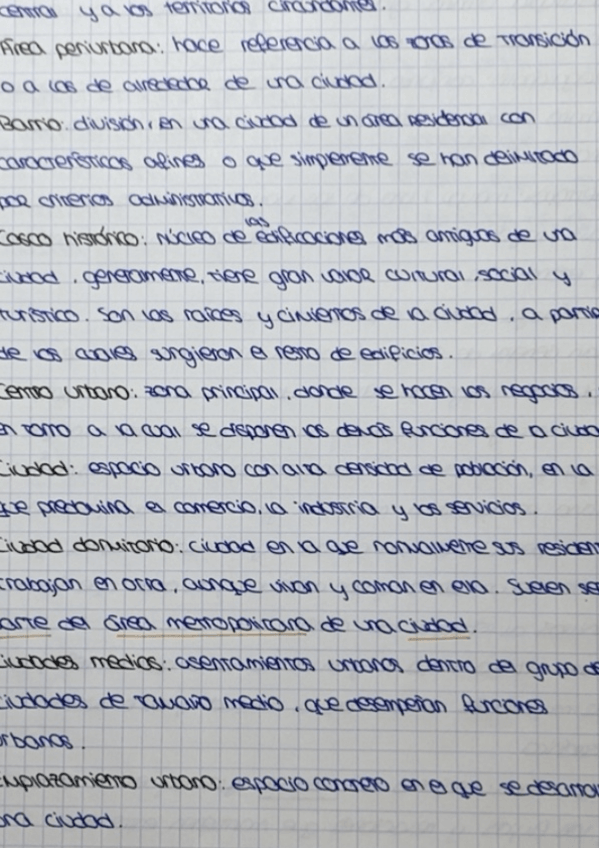 central y a los territorios circundantes.
Área periurbana: hace referencia a las zonas de transición
o a las de alrededor de una ciudad.
Barrio: división, en una ciudad de un área residencial con
características afines o que simplemente se han delimitado
por criterios administrativos.
Casco histórico: núcleo de las edificaciones más antiguas de una
ciudad, generalmente, tiene gran valor cultural, social y
turístico. Son las raíces y cimientos de la ciudad, a partir
de los cuales surgieron el resto de edificios.
Centro urbano: zona principal, donde se hacen los negocios,
en torno a la cual se disponen las demás funciones de la ciudad
Ciudad: espacio urbano con alta densidad de población, en la
que predomina el comercio, la industria y los servicios.
Ciudad dormitorio: ciudad en la que normalmente sus residen
trabajan en otra, aunque vivan y coman en ella. Suelen ser
parte del área metropolitana de una ciudad.
Ciudades medias: asentamientos urbanos dentro del grupo de
ciudades de tamaño medio, que desempeñan funciones
urbanas.
Emplazamiento urbano: espacio concreto en el que se desarrol
una ciudad.